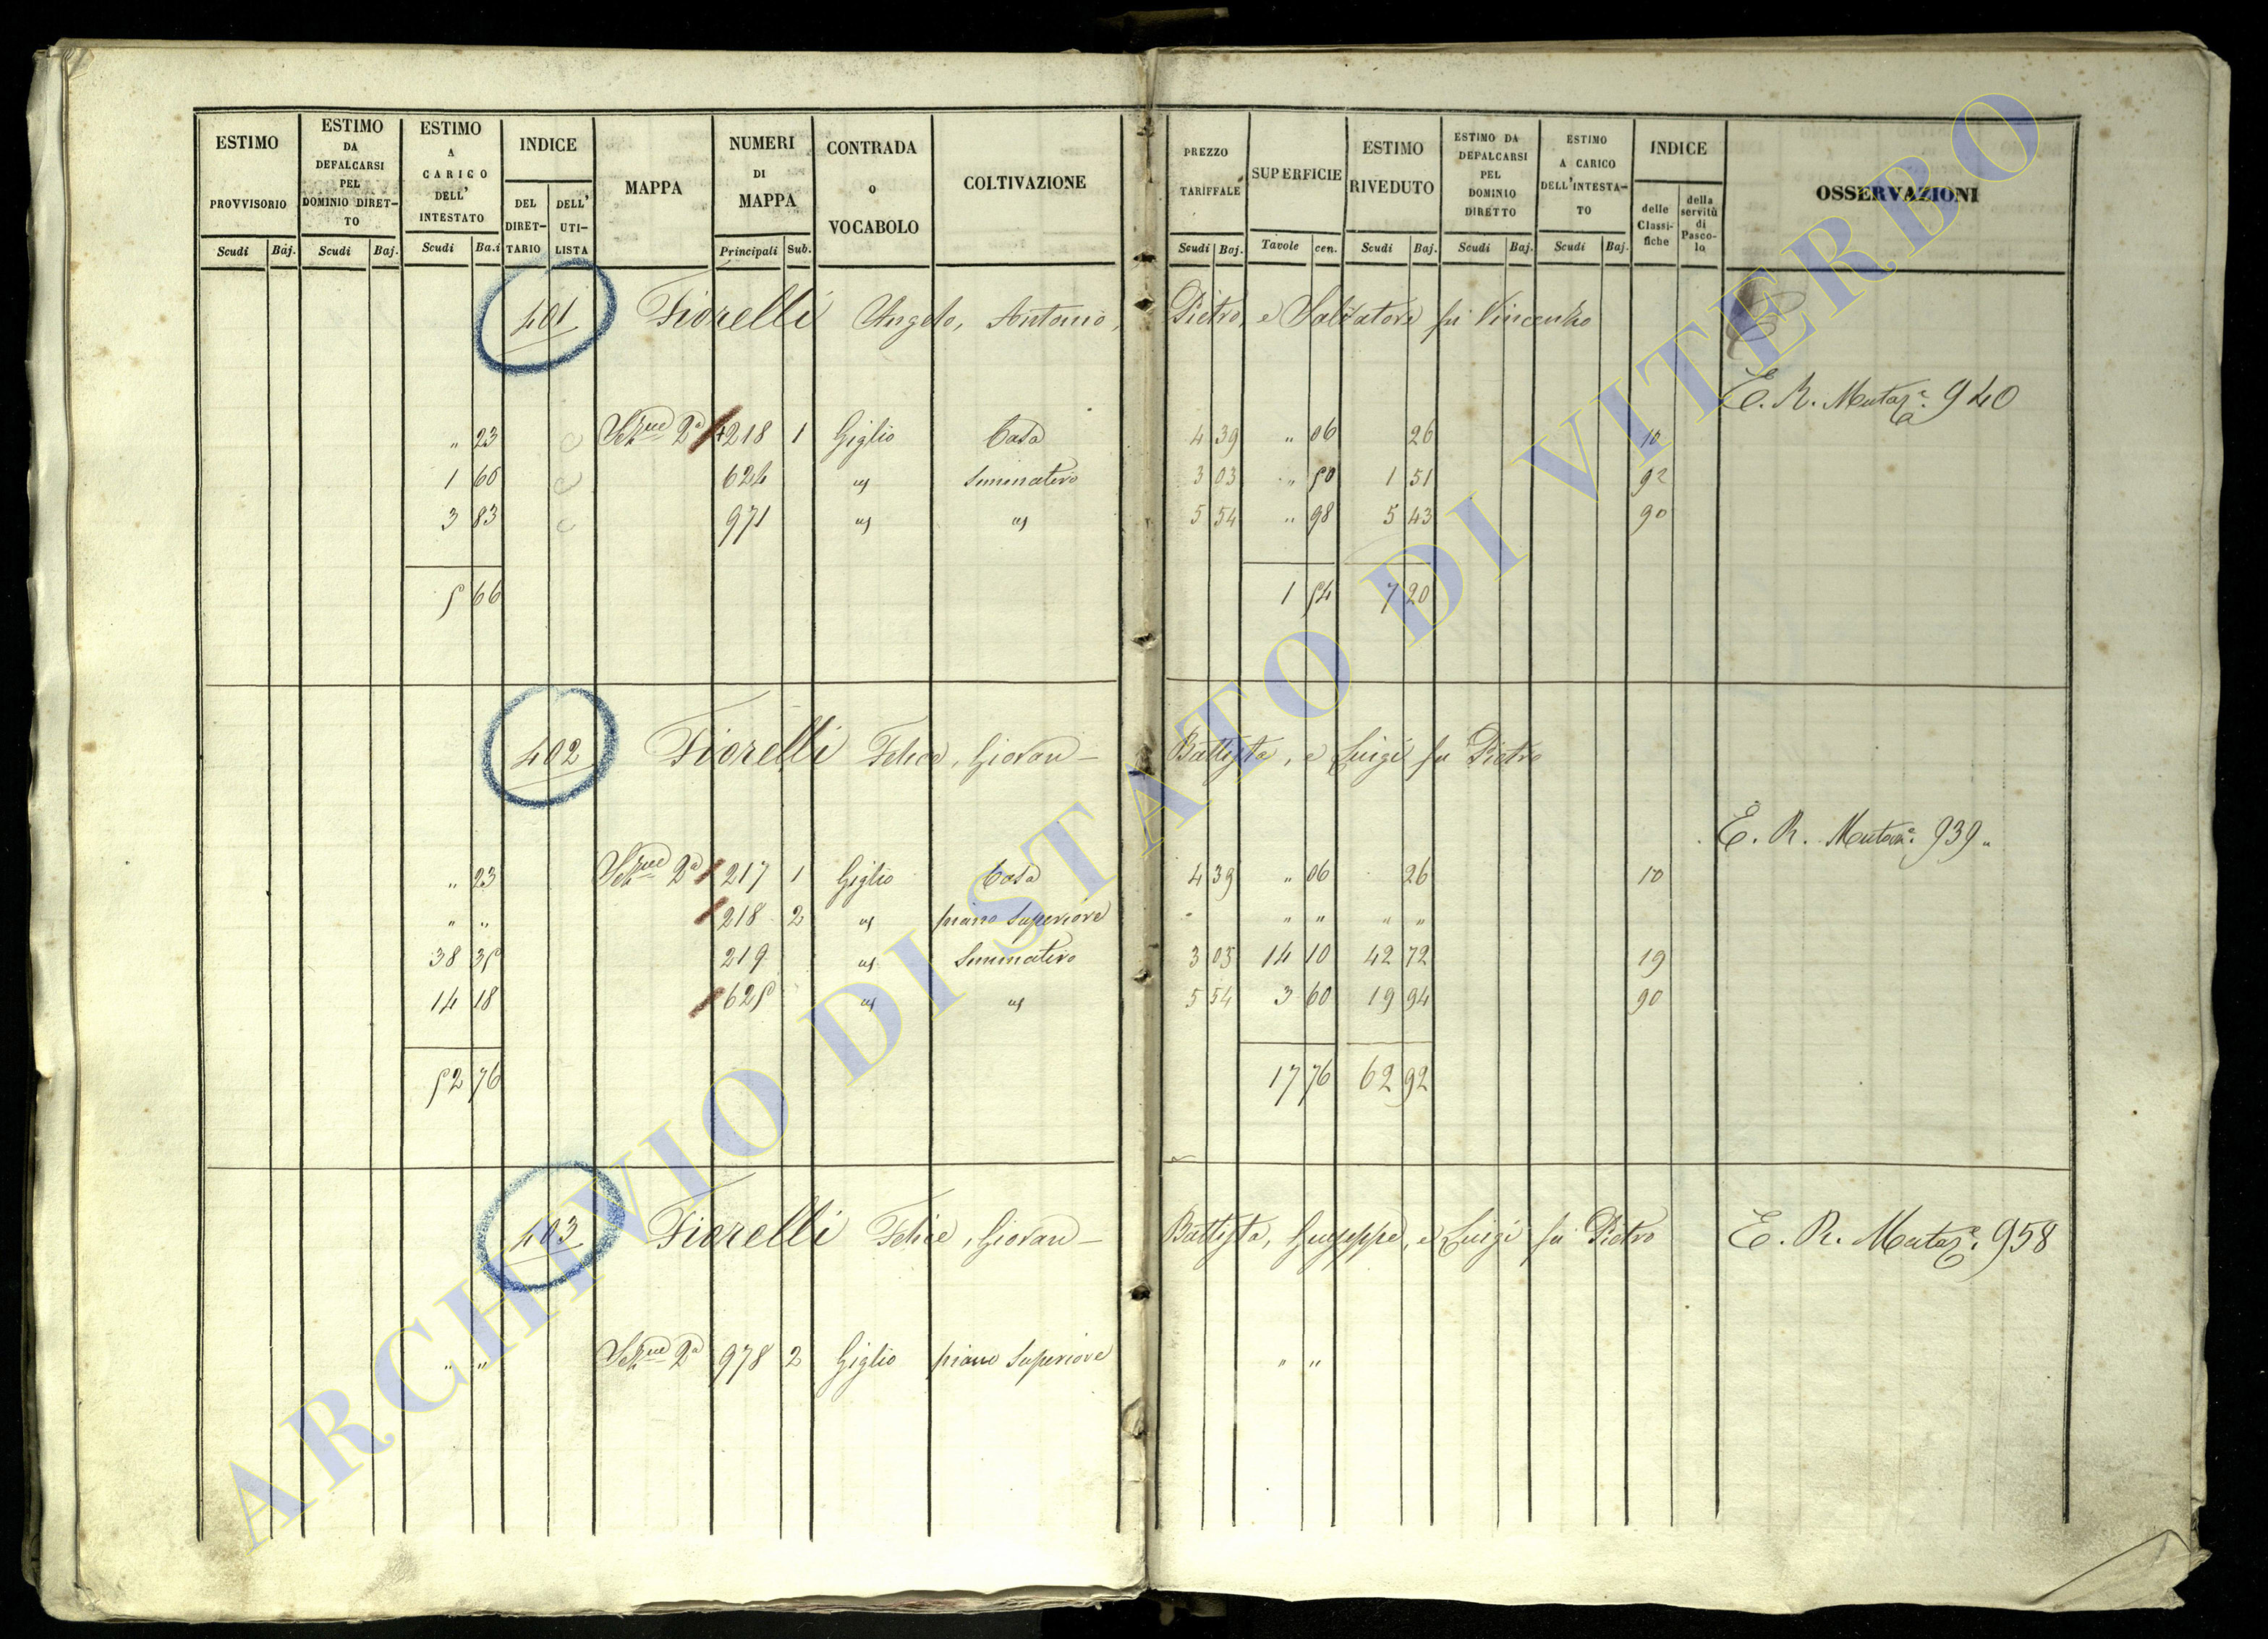 ESTIMO PROVVISORIO
ESTIMO DA DEFALCARSI PEL DOMINIO DIRET-TO
ESTIMO A CARICO DELL' INTESTATO
INDICE
DEL DIRET-TARIO
DELL' UTI-LISTA
MAPPA
NUMERI DI MAPPA
CONTRADA o VOCABOLO
COLTIVAZIONE
PREZZO TARIFFALE
SUPERFICIE
ESTIMO RIVEDUTO
ESTIMO DA DEFALCARSI PEL DOMINIO DIRETTO
ESTIMO A CARICO DELL'INTESTA-TO
INDICE
delle Classi-fiche
della servitù di Pasco-lo
OSSERVAZIONI
Scudi Baj. Scudi Baj. Scudi Ba.i Principali Sub. Scudi Baj. Tavole cen. Scudi Baj. Scudi Baj. Scudi Baj.
401 Fiorelli Angelo, Antonio, Pietro, e Salvatore fu Vincenzo
E. R. Mutaz.e 940
" 23 Seg.ue 2a +218 1 Giglio Casa 4 39 " 06 26 10
1 60 624 " Seminativo 3 03 " 50 1 51 92
3 83 971 " " 5 54 " 98 5 43 90
5 66 1 54 7 20
402 Fiorelli Felice, Giovan- Battista, e Luigi fu Pietro
E. R. Mutaz.e 939
" 23 2a 217 1 Giglio Casa 4 39 " 06 26 10
" " 218 2 " piano Superiore " " " " "
38 35 219 " Seminativo 3 03 14 10 42 72 19
14 18 625 " " 5 54 3 60 19 94 90
52 76 17 76 62 92
403 Fiorelli Felice, Giovan- Battista, Giuseppe, e Luigi fu Pietro E. R. Mutaz.e 958
" " 2a 978 2 Giglio piano Superiore " "
ARCHIVIO DI STATO DI VITERBO